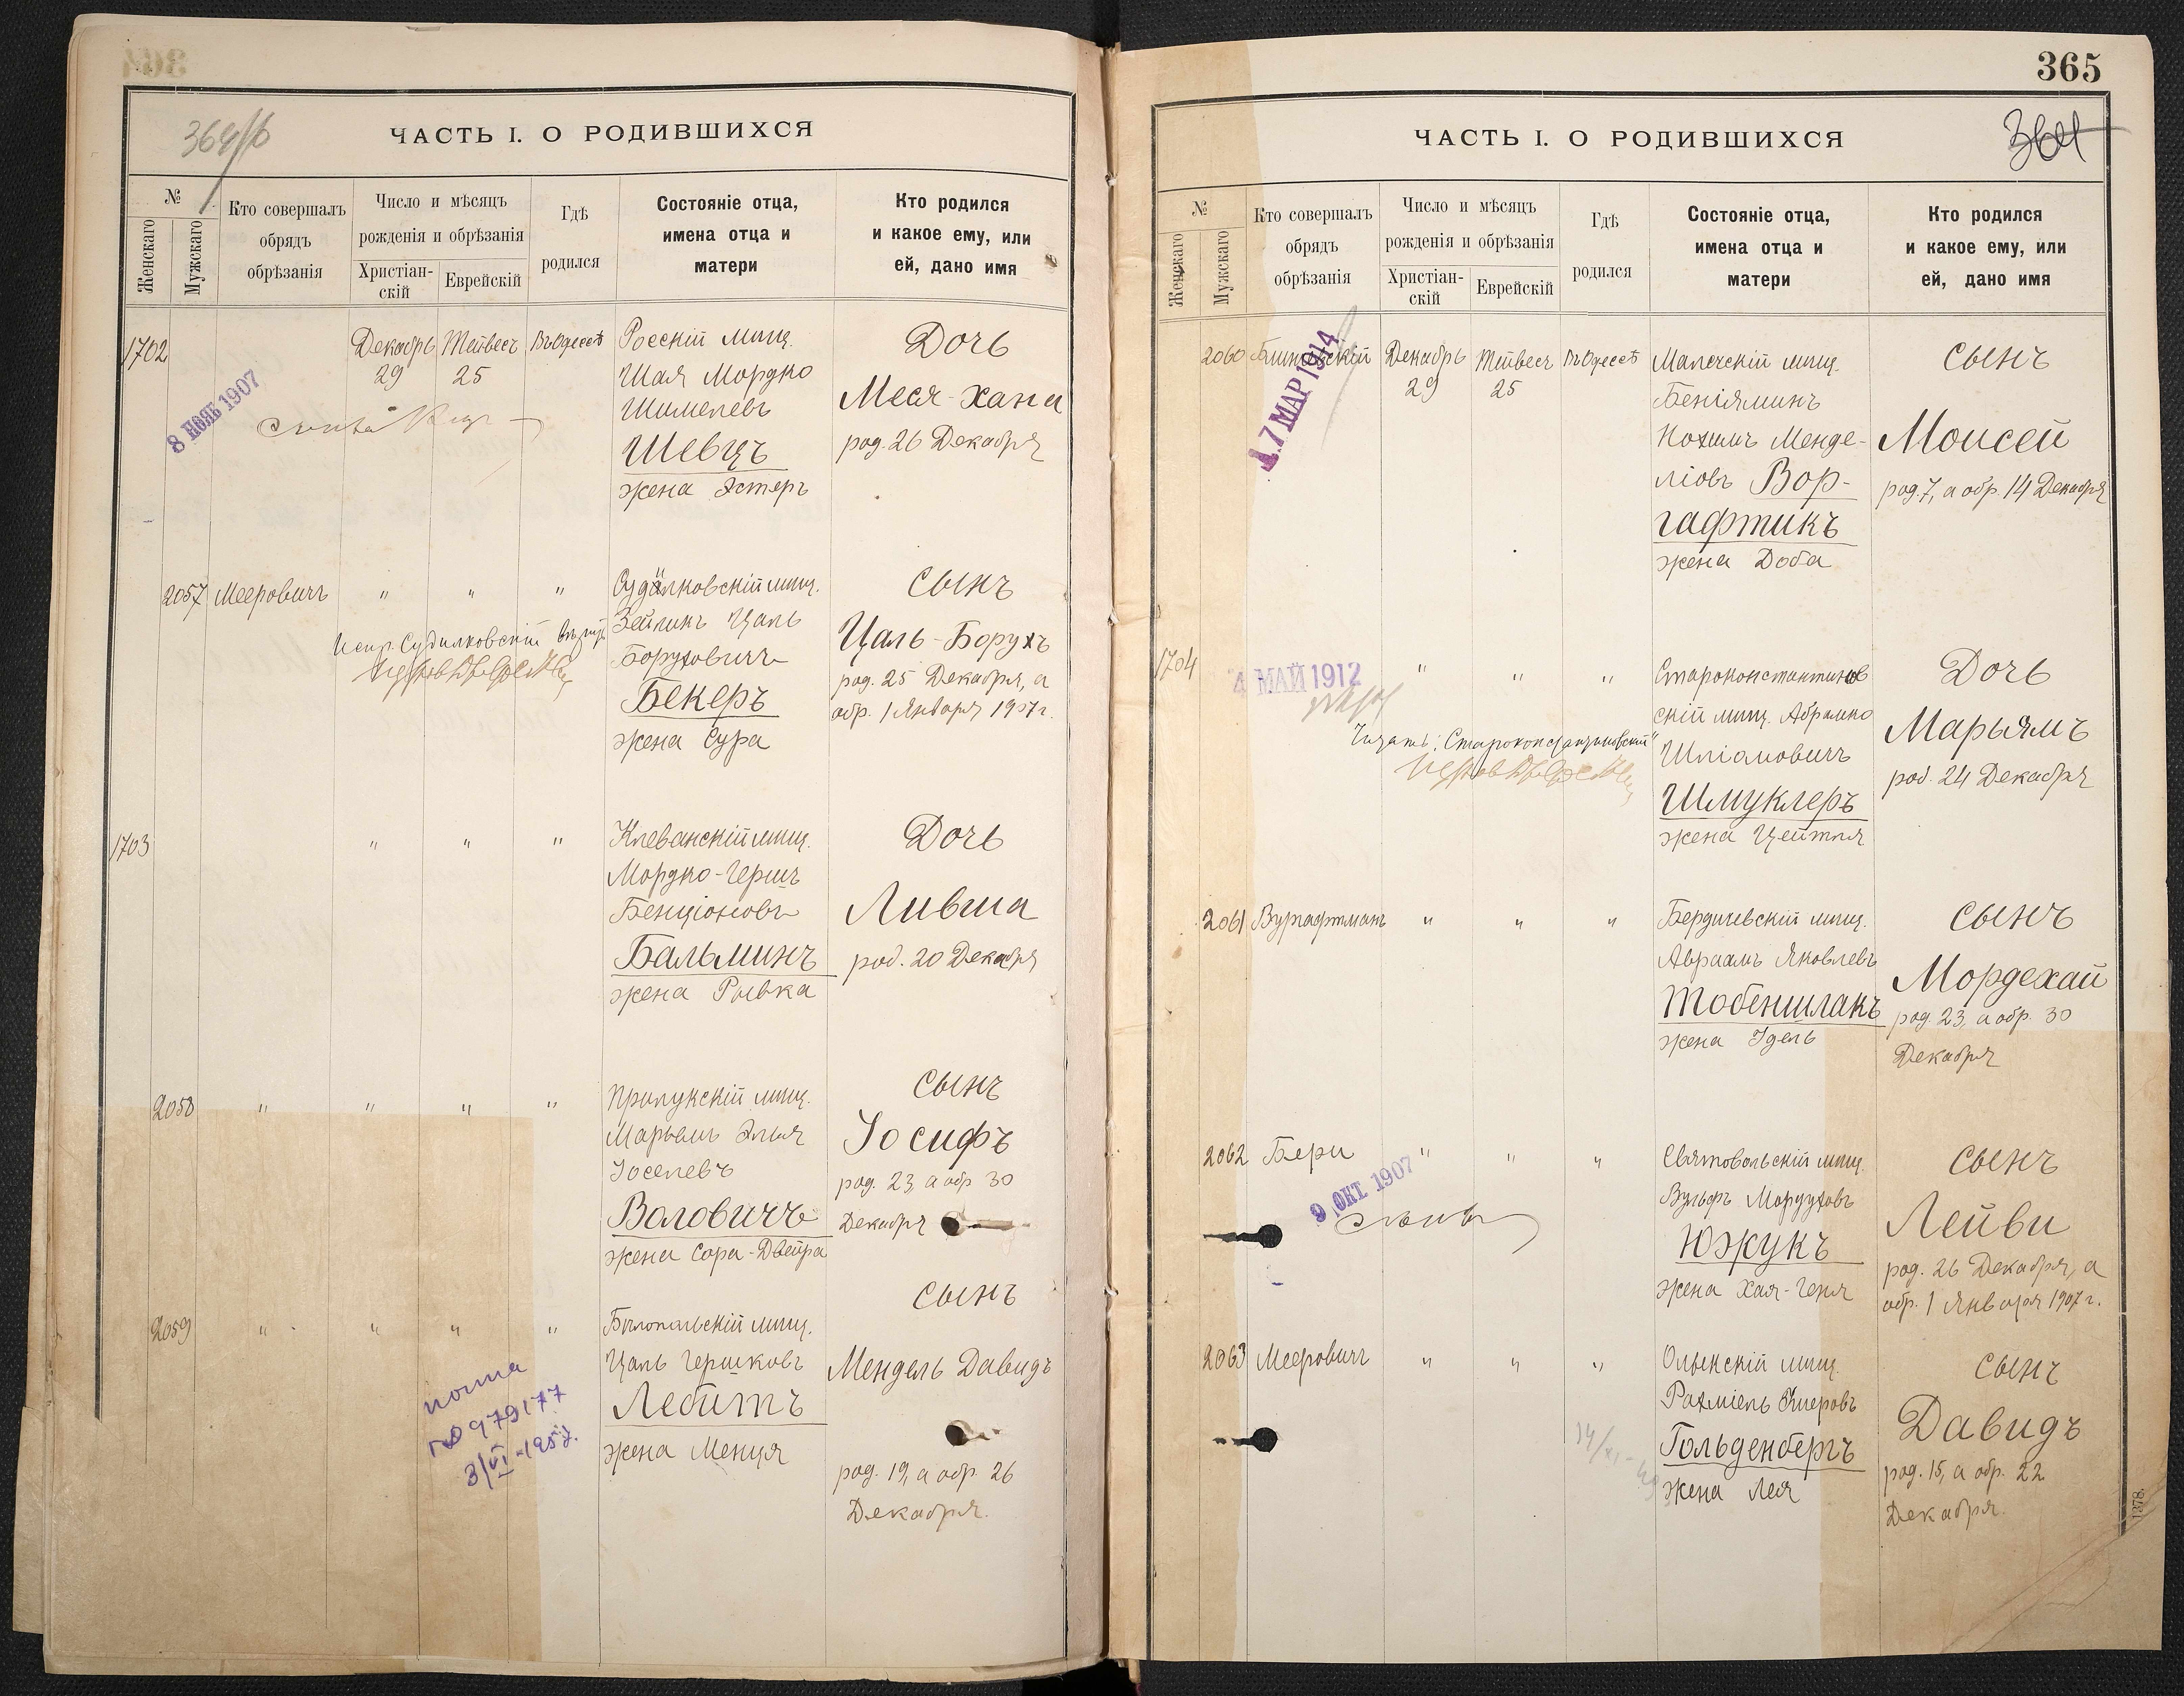 364/б
ЧАСТЬ I. О РОДИВШИХСЯ
№
Женскаго
Мужскаго
Кто совершалъ
обрядъ
обрѣзанія
Число и мѣсяцъ
рожденія и обрѣзанія
Христіан-
скій
Еврейскій
Гдѣ
родился
Состояніе отца,
имена отца и
матери
Кто родился
и какое ему, или
ей, дано имя
1702
8 НОЯБ 1907
Декабрь
29
Тейвесъ
25
Въ Одессѣ
Росскій мѣщ.
Шая Мордко
Шимелевъ
Шевцъ
жена Эстеръ
Дочь
Меся-Хана
род. 26 Декабря
2057
Мееровичъ
" " "
Судилковскій мѣщ.
Зейликъ Цаль
Боруховичъ
Бекеръ
жена Сура
Сынъ
Цаль-Борухъ
род. 25 Декабря, а
обр. 1 Января 1907 г.
Испр. Судилковскій
1703
" " "
Клеванскій мѣщ.
Мордко-Гершъ
Бенціоновъ
Бальминъ
жена Рывка
Дочь
Ливша
род. 20 Декабря
2058
" " " "
Прилукскій мѣщ.
Марьямъ Элья
Іоселевъ
Воловичъ
жена Сора-Двейра
Сынъ
Іосифъ
род. 23, а обр 30
Декабря
2059
" " " "
Бѣлопольскій мѣщ.
Цаль Гершковъ
Лебитъ
жена Менця
Сынъ
Мендель Давидъ
род. 19, а обр. 26
Декабря.
0979177
3/VI-1957.
365
364
ЧАСТЬ I. О РОДИВШИХСЯ
№
Женскаго
Мужскаго
Кто совершалъ
обрядъ
обрѣзанія
Число и мѣсяцъ
рожденія и обрѣзанія
Христіан-
скій
Еврейскій
Гдѣ
родился
Состояніе отца,
имена отца и
матери
Кто родился
и какое ему, или
ей, дано имя
2060
17 МАР 1914
Декабрь
29
Тейвесъ
25
Въ Одессѣ
мѣщ.
Беніяминъ
Нохимъ Менде-
ліовъ Вор-
гафтикъ
жена Доба
Сынъ
Моисей
род. 7, а обр. 14 Декабря
1704
4 МАЙ 1912
" " "
Староконстантинов
скій мѣщ. Абрамко
Шліомовичъ
Шмуклеръ
жена Цейтля
Дочь
Марьямъ
род. 24 Декабря
Читать: "Староконстантиновскій"
2061
Вургафтманъ
" " "
Бердичевскій мѣщ.
Авраамъ Яковлевъ
Тобеншлакъ
жена Идель
Сынъ
Мордехай
род. 23, а обр. 30
Декабря
2062
Бери
9 ОКТ 1907
" " "
мѣщ.
Вульфъ Мордуховъ
Южукъ
жена Хая-Геня
Сынъ
Лейви
род. 26 Декабря, а
обр. 1 Января 1907 г.
2063
Мееровичъ
" " "
Олыкскій мѣщ.
Рахміель
Гольденбергъ
жена Лея
Сынъ
Давидъ
род. 15, а обр. 22
Декабря.
1378.